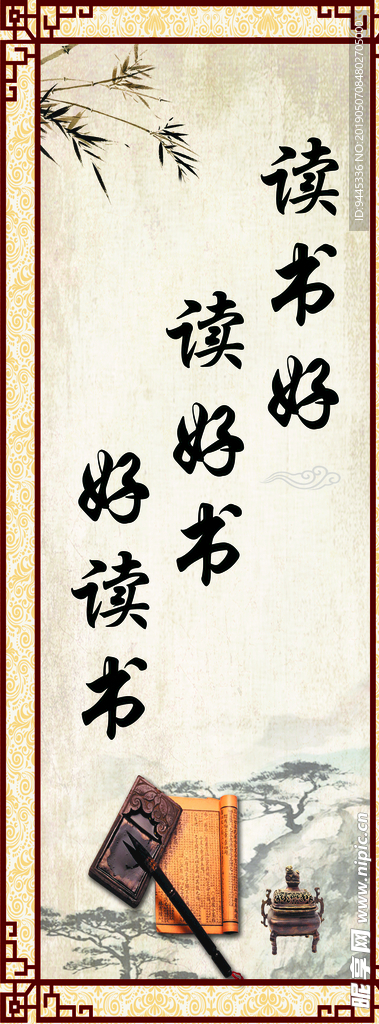 读书好
读好书
好读书
ID:9445336 NO:20190507084802705000
昵享网 www.nipic.cn